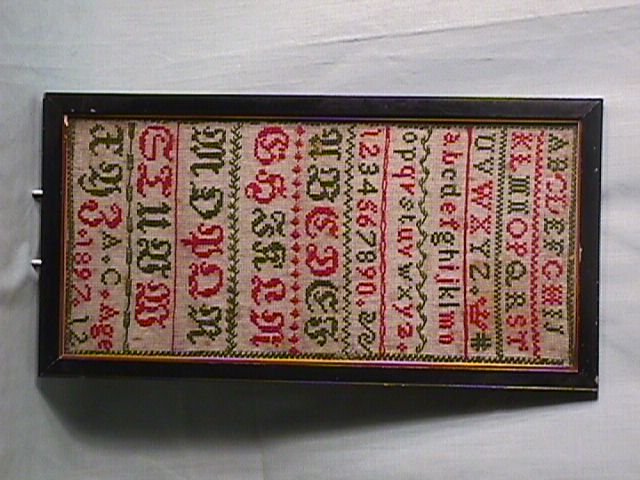 ABCDEFGHIJ
KLMNOPQRST
UVWXYZ
abcdefghijklmn
opqrstuvwxyz.
1234567890.
ABCDEF
GHIKLM
NOPQR
STUVW
XYZ A.C. Age
1897. 12